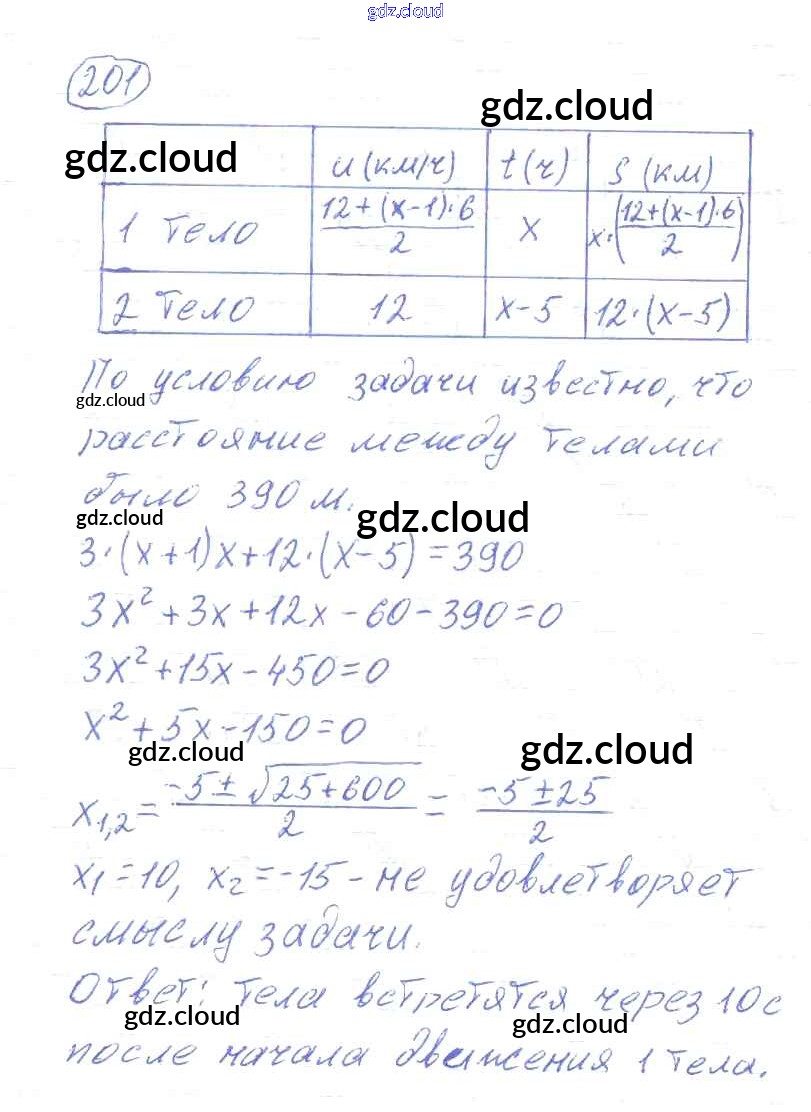 gdz.cloud
201
gdz.cloud
gdz.cloud
u (км/ч) t (ч) S (км)
1 тело (12+(x-1)·6)/2 x x·((12+(x-1)·6)/2)
2 тело 12 x-5 12·(x-5)
По условию задачи известно, что
gdz.cloud
расстояние между телами
было 390 м.
gdz.cloud
gdz.cloud
3·(x+1)x+12·(x-5)=390
3x²+3x+12x-60-390=0
3x²+15x-450=0
x²+5x-150=0
gdz.cloud
gdz.cloud
x₁,₂=(-5±√(25+600))/2 = (-5±25)/2
x₁=10, x₂=-15 - не удовлетворяет
смыслу задачи.
Ответ: тела встретятся через 10 с
gdz.cloud
gdz.cloud
после начала движения 1 тела.